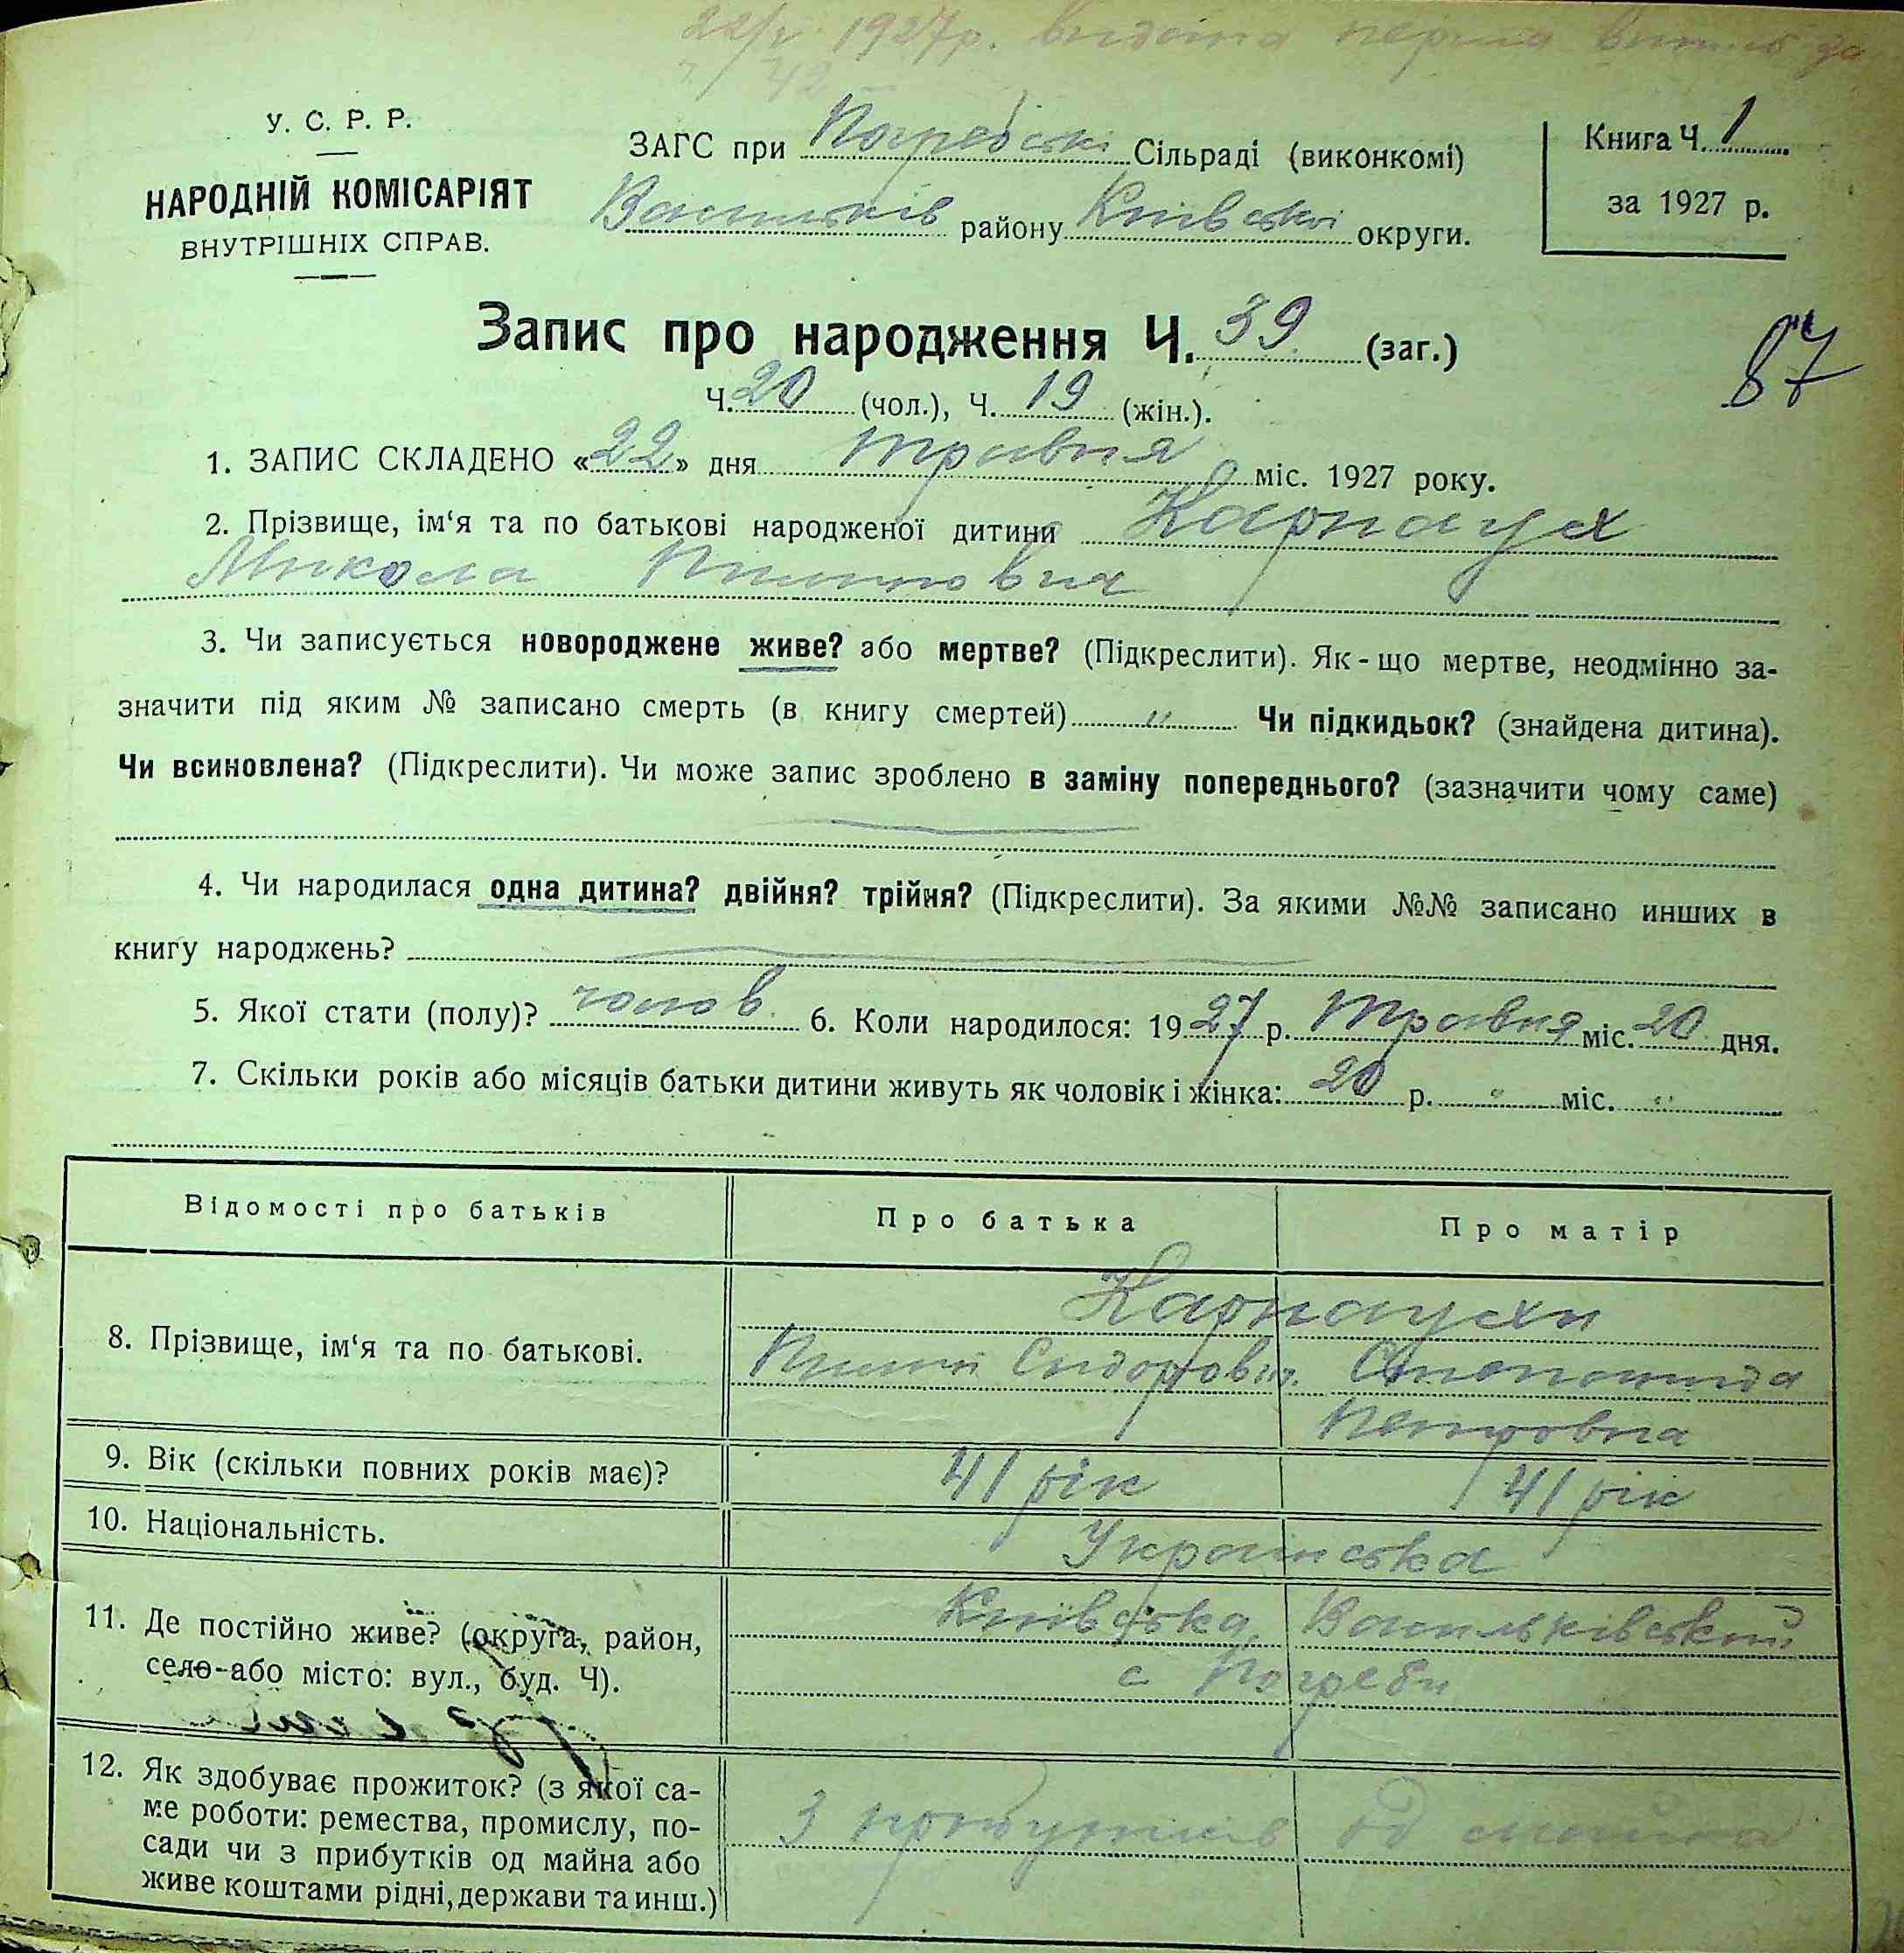 22/V 1927р. видана перша
У. С. Р. Р.
НАРОДНІЙ КОМІСАРІЯТ
ВНУТРІШНІХ СПРАВ.
ЗАГС при Погребськ Сільраді (виконкомі)
Васильків району Київської округи.
Книга Ч. 1
за 1927 р.
Запис про народження Ч. 39 (заг.)
87
Ч. 20 (чол.), Ч. 19 (жін.).
1. ЗАПИС СКЛАДЕНО «22» дня травня міс. 1927 року.
2. Прізвище, ім‘я та по батькові народженої дитини Карнаух
Микола Пилипович
3. Чи записується новороджене живе? або мертве? (Підкреслити). Як-що мертве, неодмінно за-
значити під яким № записано смерть (в книгу смертей) " Чи підкидьок? (знайдена дитина).
Чи всиновлена? (Підкреслити). Чи може запис зроблено в заміну попереднього? (зазначити чому саме)
4. Чи народилася одна дитина? двійня? трійня? (Підкреслити). За якими №№ записано инших в
книгу народжень?
5. Якої стати (полу)? чолов. 6. Коли народилося: 1927 р. Травня міс. 20 дня.
7. Скільки років або місяців батьки дитини живуть як чоловік і жінка: 20 р. " міс. "
Відомості про батьків Про батька Про матір
Карнаухи
8. Прізвище, ім‘я та по батькові. Пилип Сидорович
Петровна
9. Вік (скільки повних років має)? 41 рік 41 рік
10. Національність. Українська
11. Де постійно живе? (округа, район, Київська, Васильківський
село-або місто: вул., буд. Ч). с Погреби
12. Як здобуває прожиток? (з якої са-
ме роботи: ремества, промислу, по-
сади чи з прибутків од майна або З прибутків од майна
живе коштами рідні, держави та инш.)